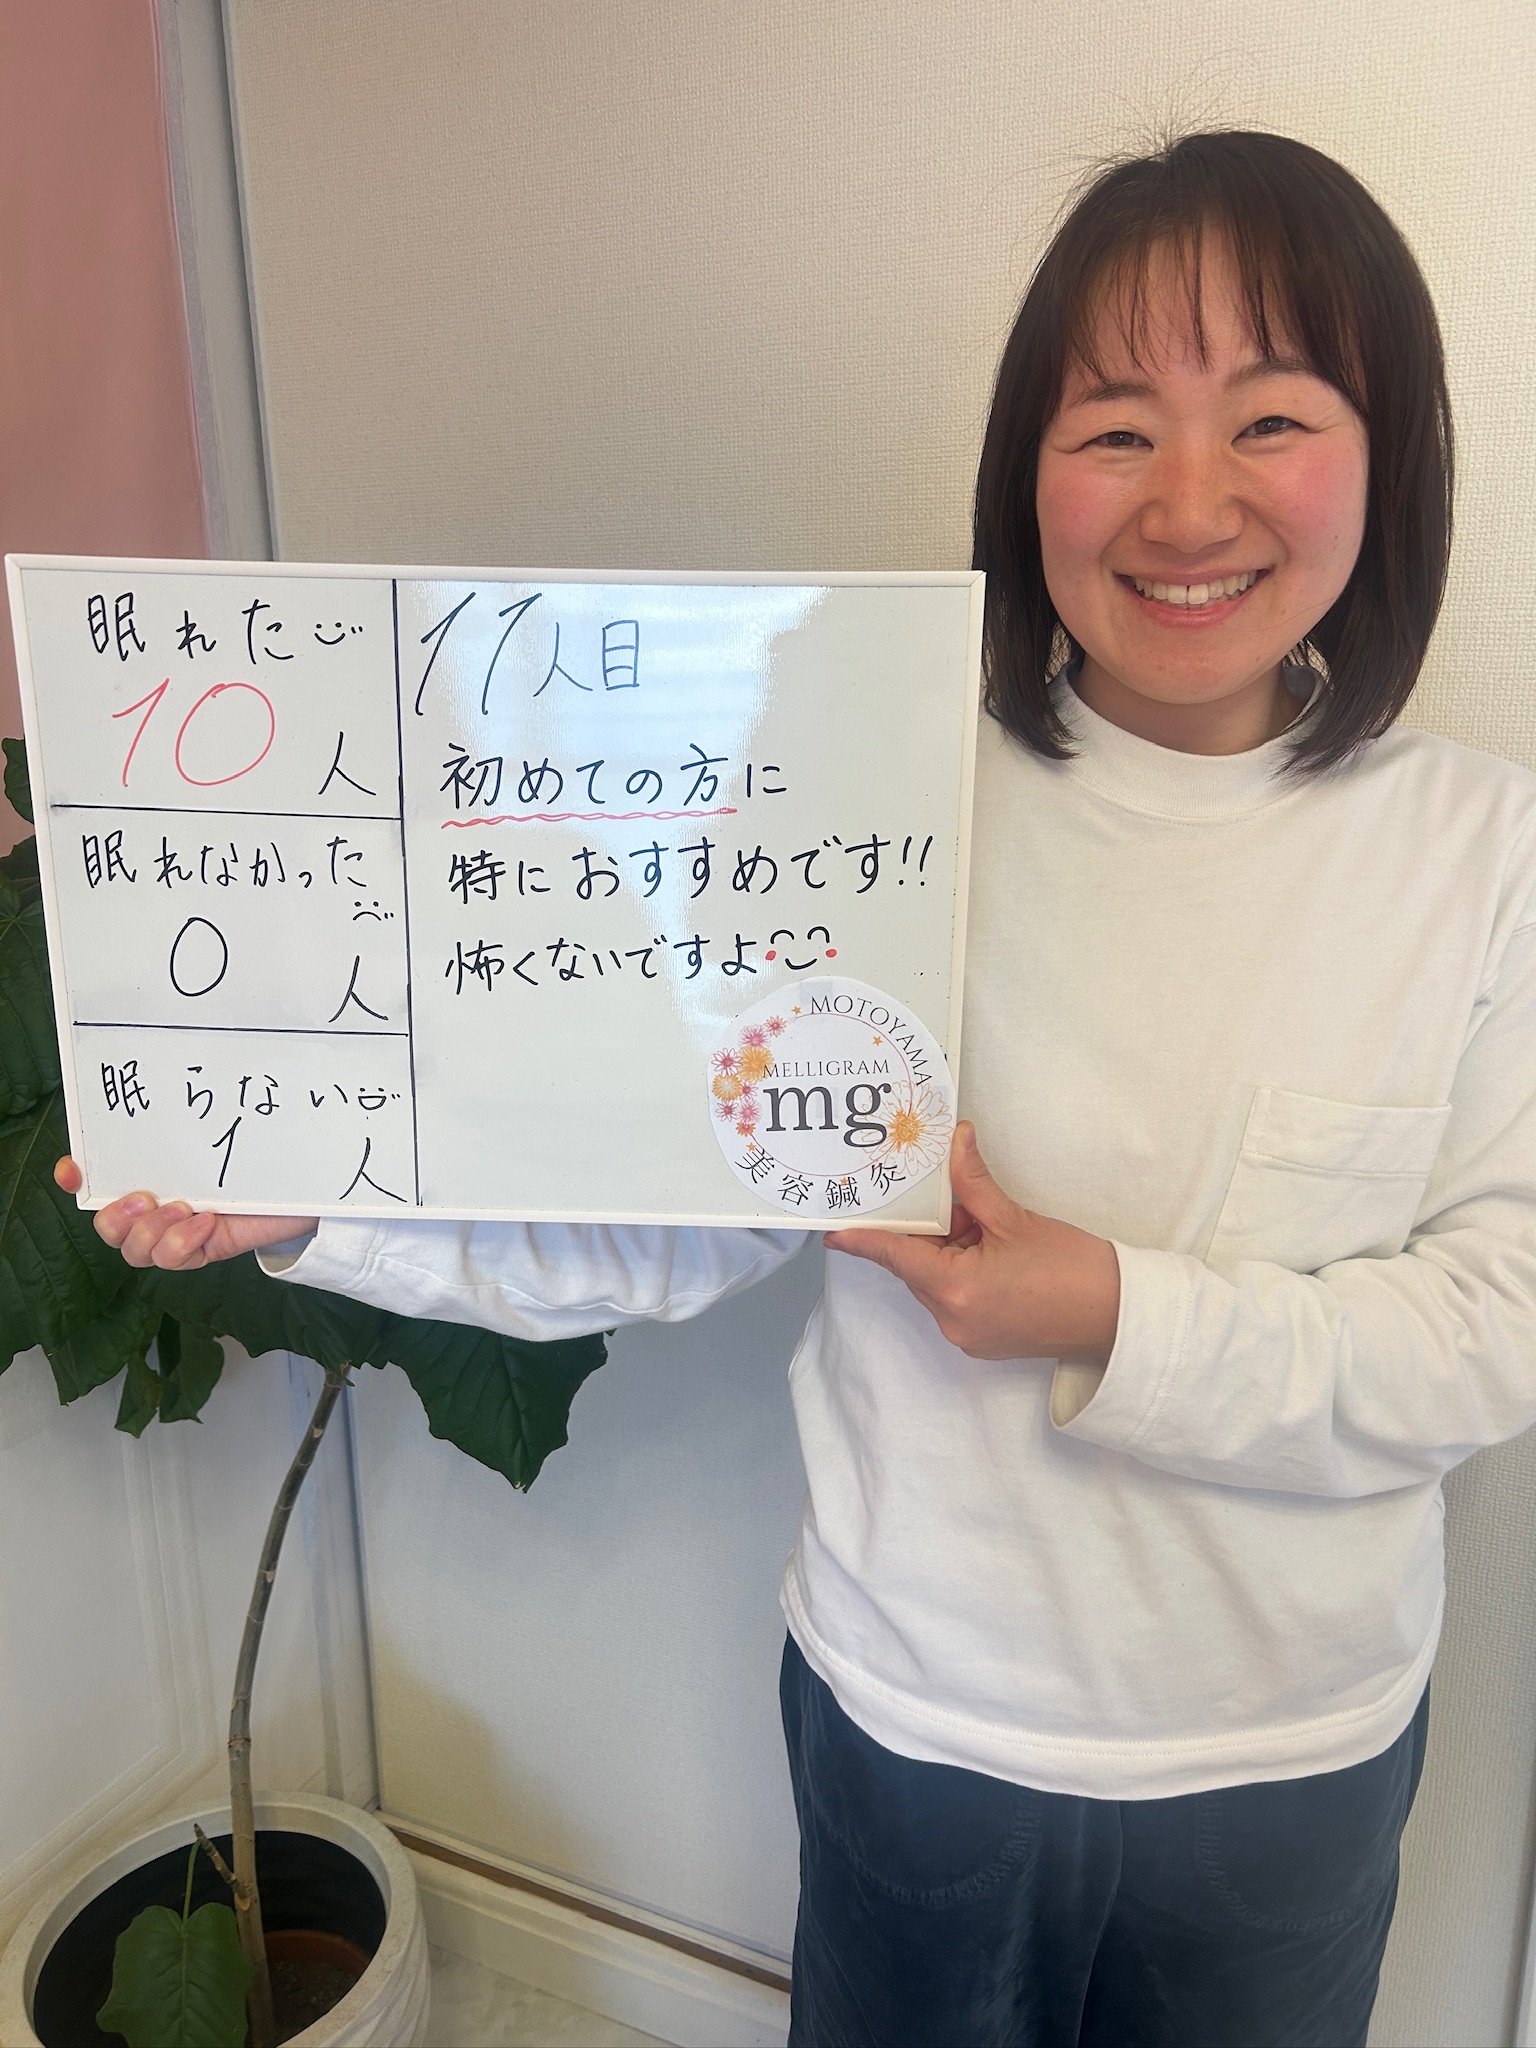 眠れた
10人
眠れなかった
0人
眠らない
1人
11人目
初めての方に
特におすすめです!!
怖くないですよ
MOTOYAMA
MELLIGRAM
mg
美容鍼灸